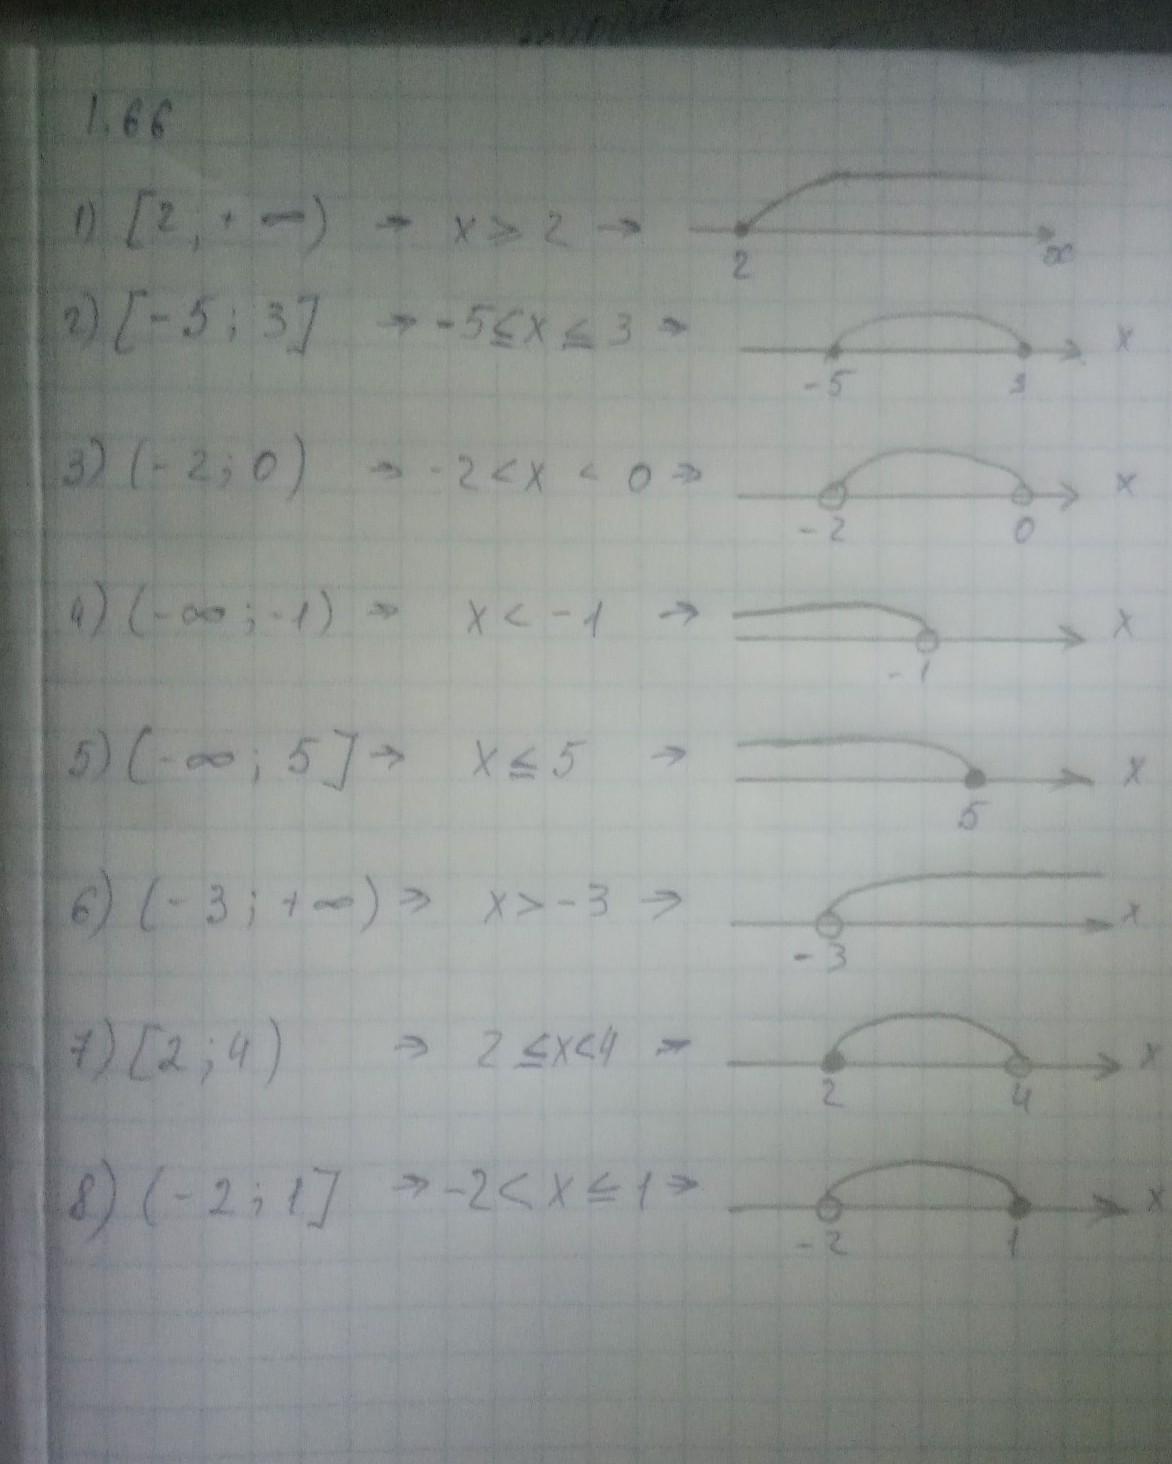 1.66
1) [2; +∞) → x ⩾ 2 →
2 ∞
2) [-5; 3] → -5 ≤ x ≤ 3 → x
-5 3
3) (-2; 0) → -2 < x < 0 → x
-2 0
4) (-∞; -1) → x < -1 → x
-1
5) (-∞; 5] → x ≤ 5 → x
5
6) (-3; +∞) → x > -3 → x
-3
7) [2; 4) → 2 ≤ x < 4 → x
2 4
8) (-2; 1] → -2 < x ≤ 1 → x
-2 1